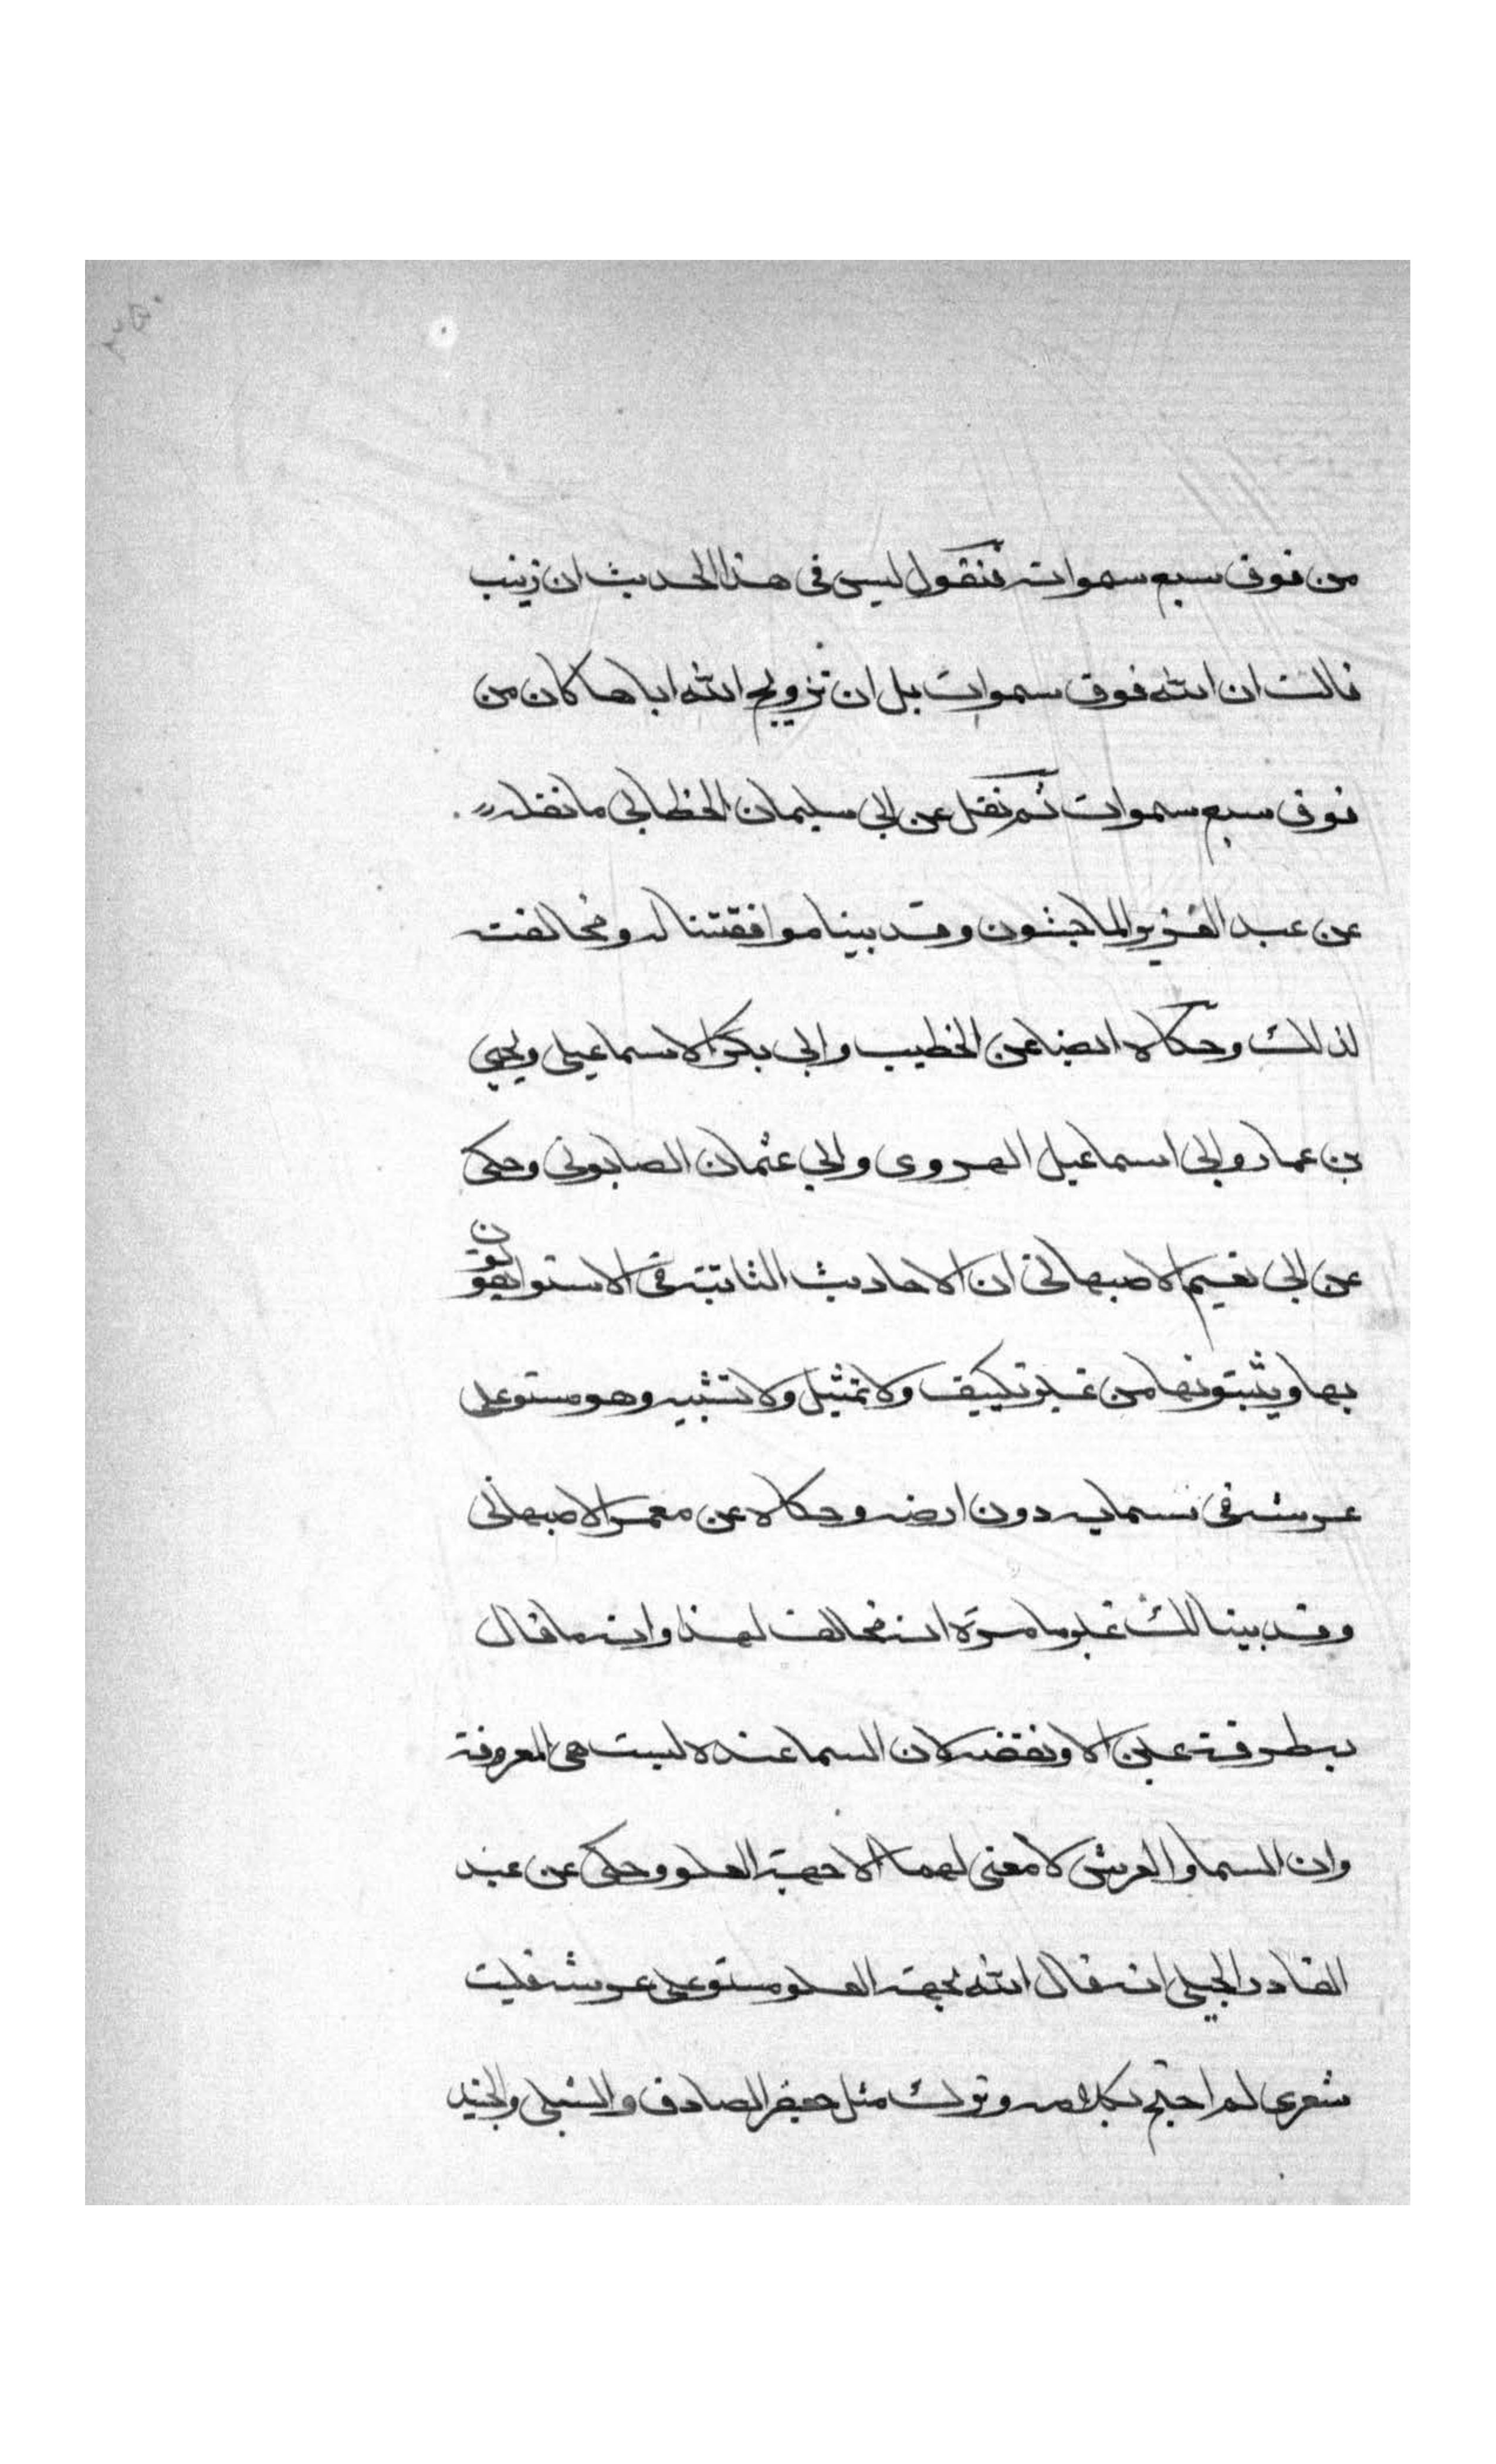 من فوق سبع سموات فنقول ليس فى هذا الحديث ان زينب
قالت ان الله فوق سموات بل ان تزويج الله اياها كان من
فوق سبع سموات ثم نقل عن ابى سليمان الخطابى ما نقله
عن عبد العزيز الماجشون وقد بينا موافقتنا له ومخالفته
لذلك وحكاه ايضا عن الخطيب وابى بكر الاسماعيلى ويحيى
بن عمار وابى اسماعيل الهروى وابى عثمان الصابونى وحكى
عن ابى نعيم الاصبهانى ان الاحاديث الثابتة فى الاستوا يقولون
بها ويثبتونها من غير تكييف ولا تمثيل ولا تشبيه وهو مستو على
عرشه فى سمايه دون ارضه وحكاه عن معمر الاصبهانى
وقد بينا لك غير ما مرة انه مخالف لهذا وانه ما قال
به طرفة عين الا ونقضه لان السما عنده ليست هى المعروفة
وان السما والعرش لا معنى لهما الا جهة العلو وحكى عن عبد
القادر الجيلى انه قال الله بجهة العلو مستو على عرشه فليت
شعرى لم احتج بكلامه وترك مثل جعفر الصادق والشبلى والجنيد